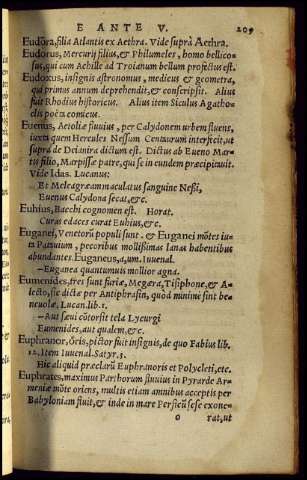 E ANTE V. 209
Eudora, filia Atlantis ex Aethra. Vide suprà Aethra.
Eudorus, Mercurij filius, & Philumeles, homo bellico-
sus, qui cum Achille ad Troianum bellum profectus est.
Eudoxus, insignis astronomus, medicus & geometra,
qui primus annum deprehendit, & conscripsit. Alius
fuit Rhodius historicus. Alius item Siculus Agatho-
clis poëta comicus.
Euenus, Aetoliæ fluuius, per Calydonem urbem fluens,
iuxta quem Hercules Nessum Centaurum interfecit, ut
suprà de Deianira dictum est. Dictus ab Eueno Mar-
tis filio, Marpissæ patre, qui se in eundem præcipitauit.
Vide Idas. Lucanus:
Et Meleagræam maculatus sanguine Nessi,
Euenus Calydona secat, &c.
Euhius, Bacchi cognomen est. Horat.
Curas edaces curat Euhius, &c.
Euganei, Venetorũ populi sunt. & Euganei mõtes iu-
xta Patauium, pecoribus mollissimas lanas habentibus
abundantes. Euganeus, a, um. Iuuenal.
—Euganea quantumuis mollior agna.
Eumenides, tres sunt furiæ, Megæra, Tisiphone, & A-
lecto, sic dictæ per Antiphrasin, quòd minimè sint be-
neuolæ. Lucan. lib. 1.
—Aut sæui cõtorsit tela Lycurgi
Eumenides, aut qualem, &c.
Euphranor, ôris, pictor fuit insignis, de quo Fabius lib.
12. Item Iuuenal. Satyr. 3.
Hic aliquid præclarũ Euphranoris et Polycleti, etc.
Euphrates, maximus Parthorum fluuius in Pyrarde Ar-
meniæ mõte oriens, multis etiam amnibus acceptis per
Babyloniam fluit, & inde in mare Persicũ sese exone-
o rat, ut